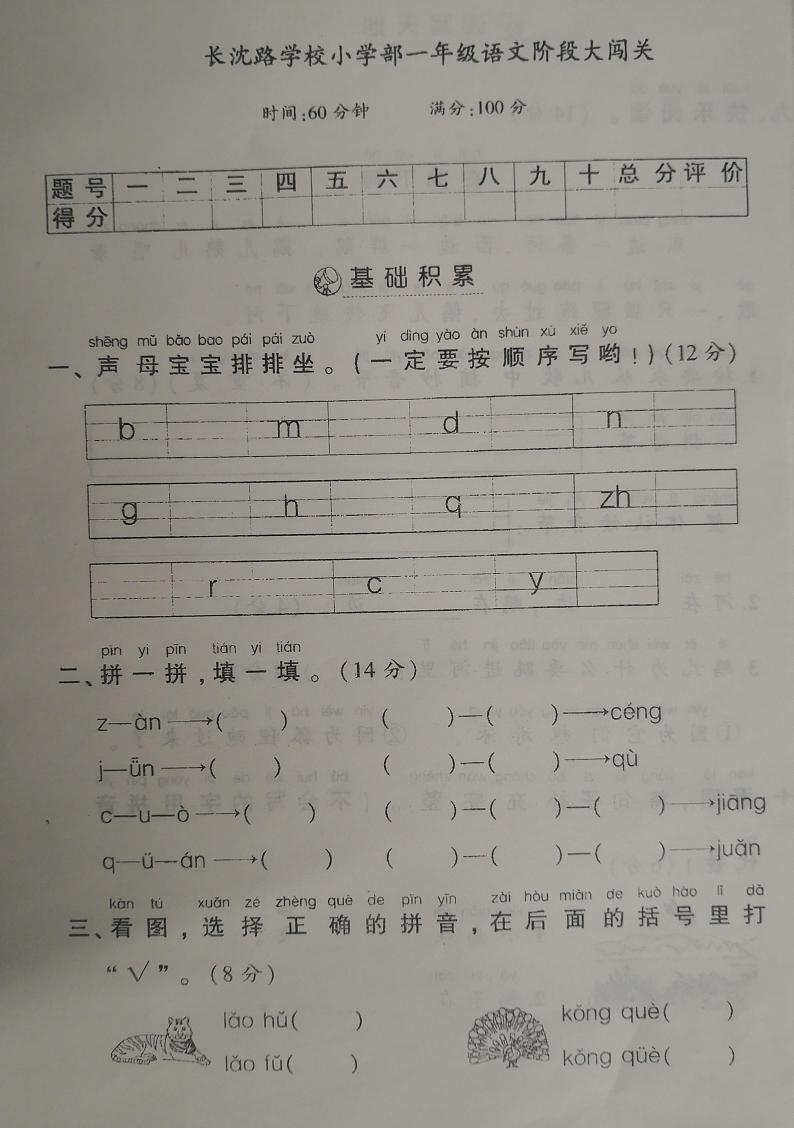 长沈路学校小学部一年级语文阶段大闯关
时间:60分钟 满分:100分
题号 一 二 三 四 五 六 七 八 九 十 总分 评价
得分
基础积累
shēng mǔ bǎo bao pái pái zuò yí dìng yào àn shùn xù xiě yo
一、声母宝宝排排坐。(一定要按顺序写哟!)(12分)
b m d n
g h q zh
r c y
pīn yi pīn tián yi tián
二、拼一拼,填一填。(14分)
z—àn→( ) ( )—( )→céng
j—ǖn→( ) ( )—( )→qù
c—u—ò→( ) ( )—( )—( )→jiāng
q—ü—án→( ) ( )—( )—( )→juǎn
kàn tú xuǎn zé zhèng què de pīn yīn zài hòu miàn de kuò hào lǐ dǎ
三、看图,选择正确的拼音,在后面的括号里打
“√”。(8分)
lǎo hǔ( ) kǒng què( )
lǎo fǔ( ) kǒng qüè( )